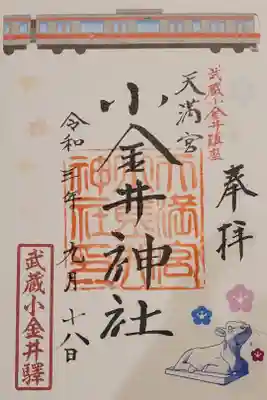 奉拝
武蔵小金井鎮座
天満宮
小金井神社
令和三年九月十八日
武蔵小金井驛